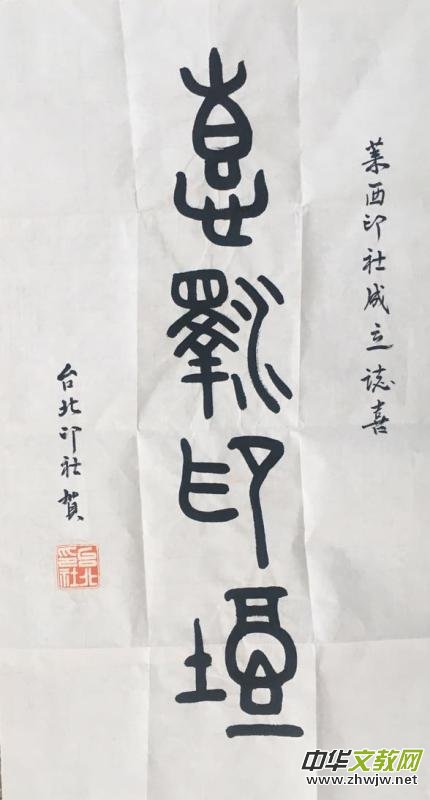 莱西印社成立誌喜
惪澤印壇
台北印社賀
台北印社
中华文教网
www.zhwjw.net